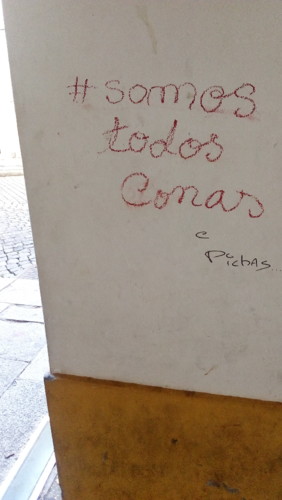 #somos
todos
Conas
e
Pichas...